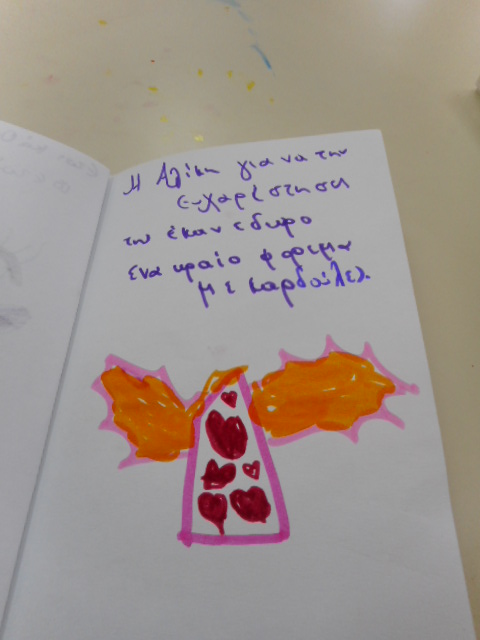 Η Αλίκη για να την
ευχαρίστησει
την έκαν εδωρο
ένα ωραίο φορεμα
με καρδούλες.